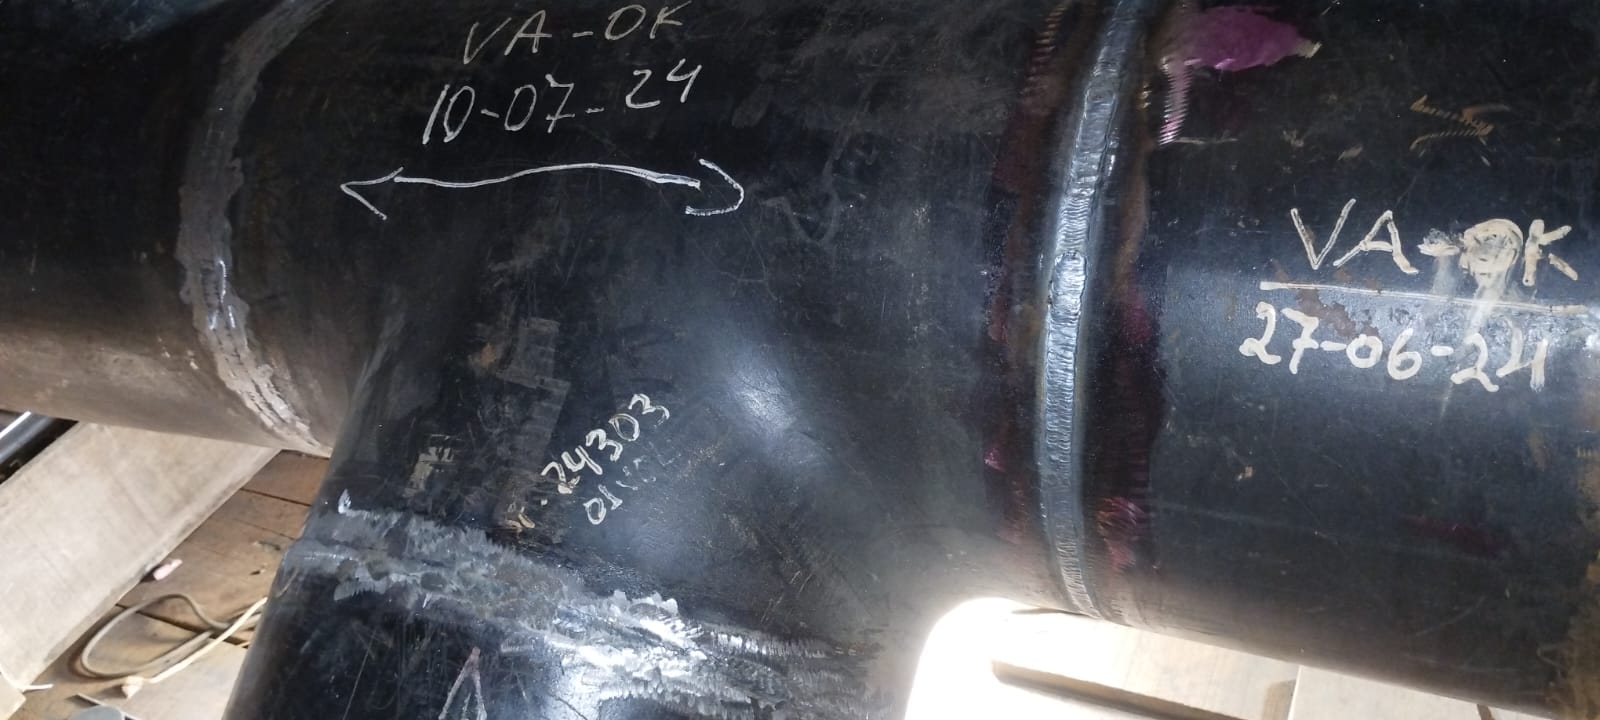 VA-OK
10-07-24
VA-OK
27-06-24
24303